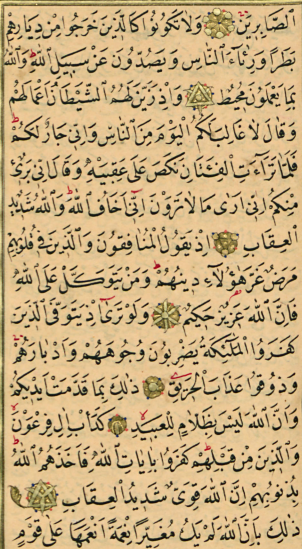 الصَّابِرِينَ وَلَا تَكُونُوا كَالَّذِينَ خَرَجُوا مِنْ دِيَارِهِمْ
بَطَرًا وَرِئَاءَ النَّاسِ وَيَصُدُّونَ عَنْ سَبِيلِ اللَّهِ وَاللَّهُ
بِمَا يَعْمَلُونَ مُحِيطٌ وَإِذْ زَيَّنَ لَهُمُ الشَّيْطَانُ أَعْمَالَهُمْ
وَقَالَ لَا غَالِبَ لَكُمُ الْيَوْمَ مِنَ النَّاسِ وَإِنِّي جَارٌ لَكُمْ
فَلَمَّا تَرَاءَتِ الْفِئَتَانِ نَكَصَ عَلَى عَقِبَيْهِ وَقَالَ إِنِّي بَرِيءٌ
مِنْكُمْ إِنِّي أَرَى مَا لَا تَرَوْنَ إِنِّي أَخَافُ اللَّهَ وَاللَّهُ شَدِيدُ
الْعِقَابِ إِذْ يَقُولُ الْمُنَافِقُونَ وَالَّذِينَ فِي قُلُوبِهِمْ
مَرَضٌ غَرَّ هَؤُلَاءِ دِينُهُمْ وَمَنْ يَتَوَكَّلْ عَلَى اللَّهِ
فَإِنَّ اللَّهَ عَزِيزٌ حَكِيمٌ وَلَوْ تَرَى إِذْ يَتَوَفَّى الَّذِينَ
كَفَرُوا الْمَلَئِكَةُ يَضْرِبُونَ وُجُوهَهُمْ وَأَدْبَارَهُمْ
وَذُوقُوا عَذَابَ الْحَرِيقِ ذَلِكَ بِمَا قَدَّمَتْ أَيْدِيكُمْ
وَأَنَّ اللَّهَ لَيْسَ بِظَلَّامٍ لِلْعَبِيدِ كَدَأْبِ آلِ فِرْعَوْنَ
وَالَّذِينَ مِنْ قَبْلِهِمْ كَفَرُوا بِآيَاتِ اللَّهِ فَأَخَذَهُمُ اللَّهُ
بِذُنُوبِهِمْ إِنَّ اللَّهَ قَوِيٌّ شَدِيدُ الْعِقَابِ
ذَلِكَ بِأَنَّ اللَّهَ لَمْ يَكُ مُغَيِّرًا نِعْمَةً أَنْعَمَهَا عَلَى قَوْمٍ